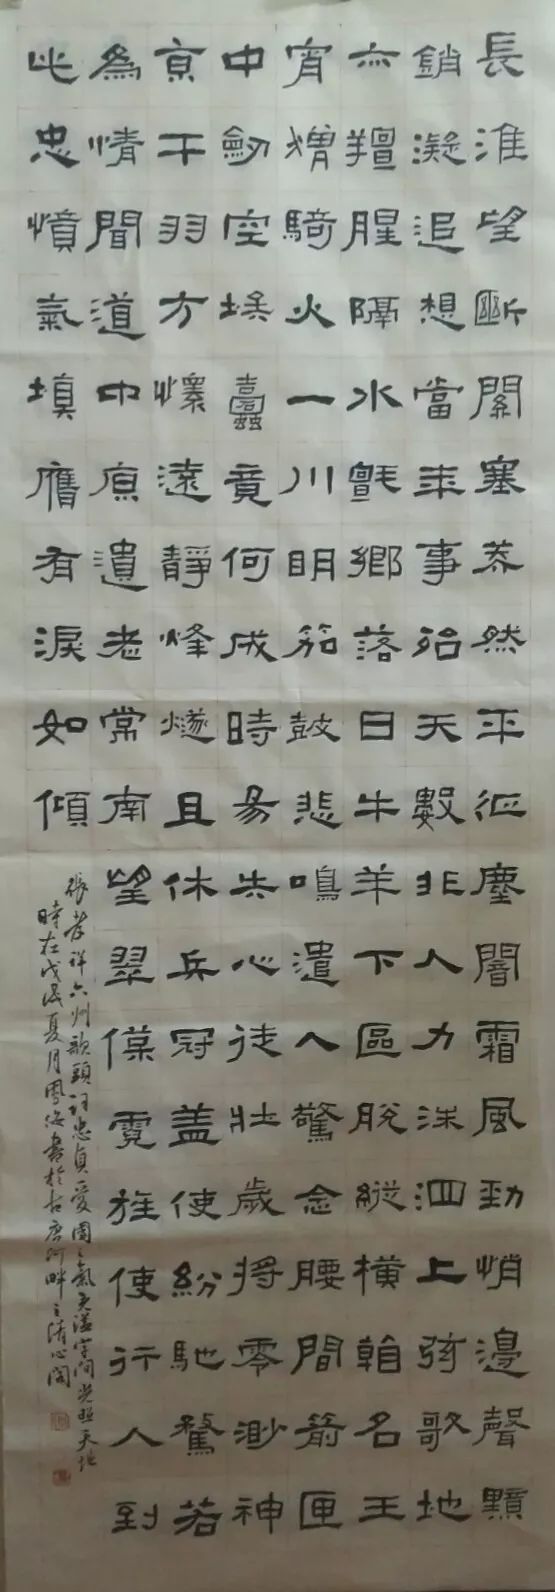 長淮望斷關塞莽然平征塵闇霜風勁悄邊聲黯
銷凝追想當年事殆天數非人力洙泗上弦歌地
亦羶腥隔水氈鄉落日牛羊下區脫縱橫看名王
宵獵騎火一川明笳鼓悲鳴遣人驚念腰間箭匣
中劍空埃蠹竟何成時易失心徒壯歲將零渺神
京干羽方懷遠靜烽燧且休兵冠蓋使紛馳騖若
為情聞道中原遺老常南望翠葆霓旌使行人到
此忠憤氣填膺有淚如傾
張孝祥六州歌頭詞忠貞愛國之氣充溢字間光照天地
時在戊戌夏月鳳海書於古唐河畔之清心閣